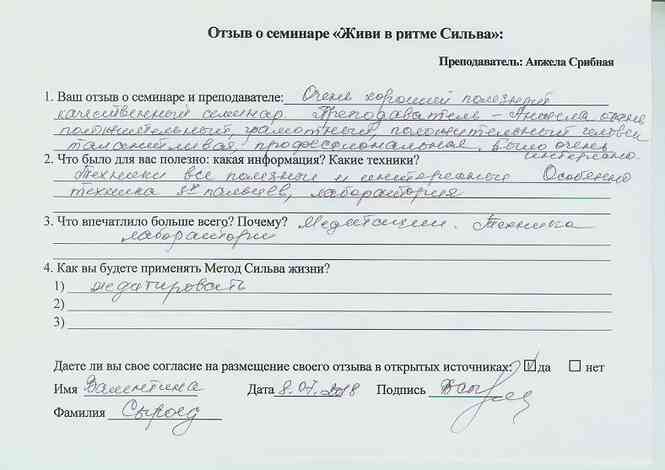 Отзыв о семинаре «Живи в ритме Сильва»:
Преподаватель: Анжела Срибная
1. Ваш отзыв о семинаре и преподавателе: Очень хороший полезный
качественный семинар. Преподаватель – Анжела очень
положительный, грамотный, положительный человек
талантливая, профессиональная. Было очень
интересно.
2. Что было для вас полезно: какая информация? Какие техники?
Техники все полезные и интересные Особенно
техника 3х пальцев, лаборатория
3. Что впечатлило больше всего? Почему? Медитации. Техника
лаборатории
4. Как вы будете применять Метод Сильва жизни?
1) медитировать
2)
3)
Даете ли вы свое согласие на размещение своего отзыва в открытых источниках: да нет
Имя Валентина Дата 8.07.2018 Подпись
Фамилия Сыроед